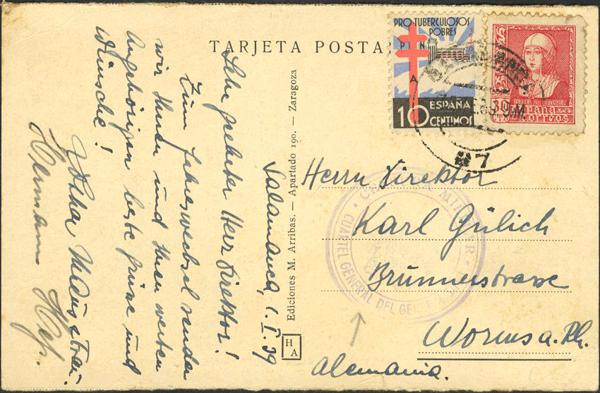 TARJETA POSTAL
PRO TUBERCULOSOS
POBRES
ESPAÑA
10 CENTIMOS
30
87
CUARTEL GENERAL DEL
Herrn Direktor
Karl Gülich
Brünnerstrasse
Worms a. Rh.
Alemania.
Ediciones M. Arribas. - Apartado 190. - Zaragoza
HA
Salamanca, 1.I.39
Sehr geehrter Herr Direktor!
Zum Jahreswechsel senden
wir Ihnen und Ihren werten
Angehörigen beste Grüsse und
Wünsche!
Hermann